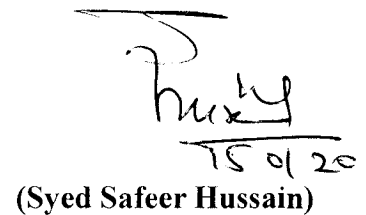 15 01 20
(Syed Safeer Hussain)